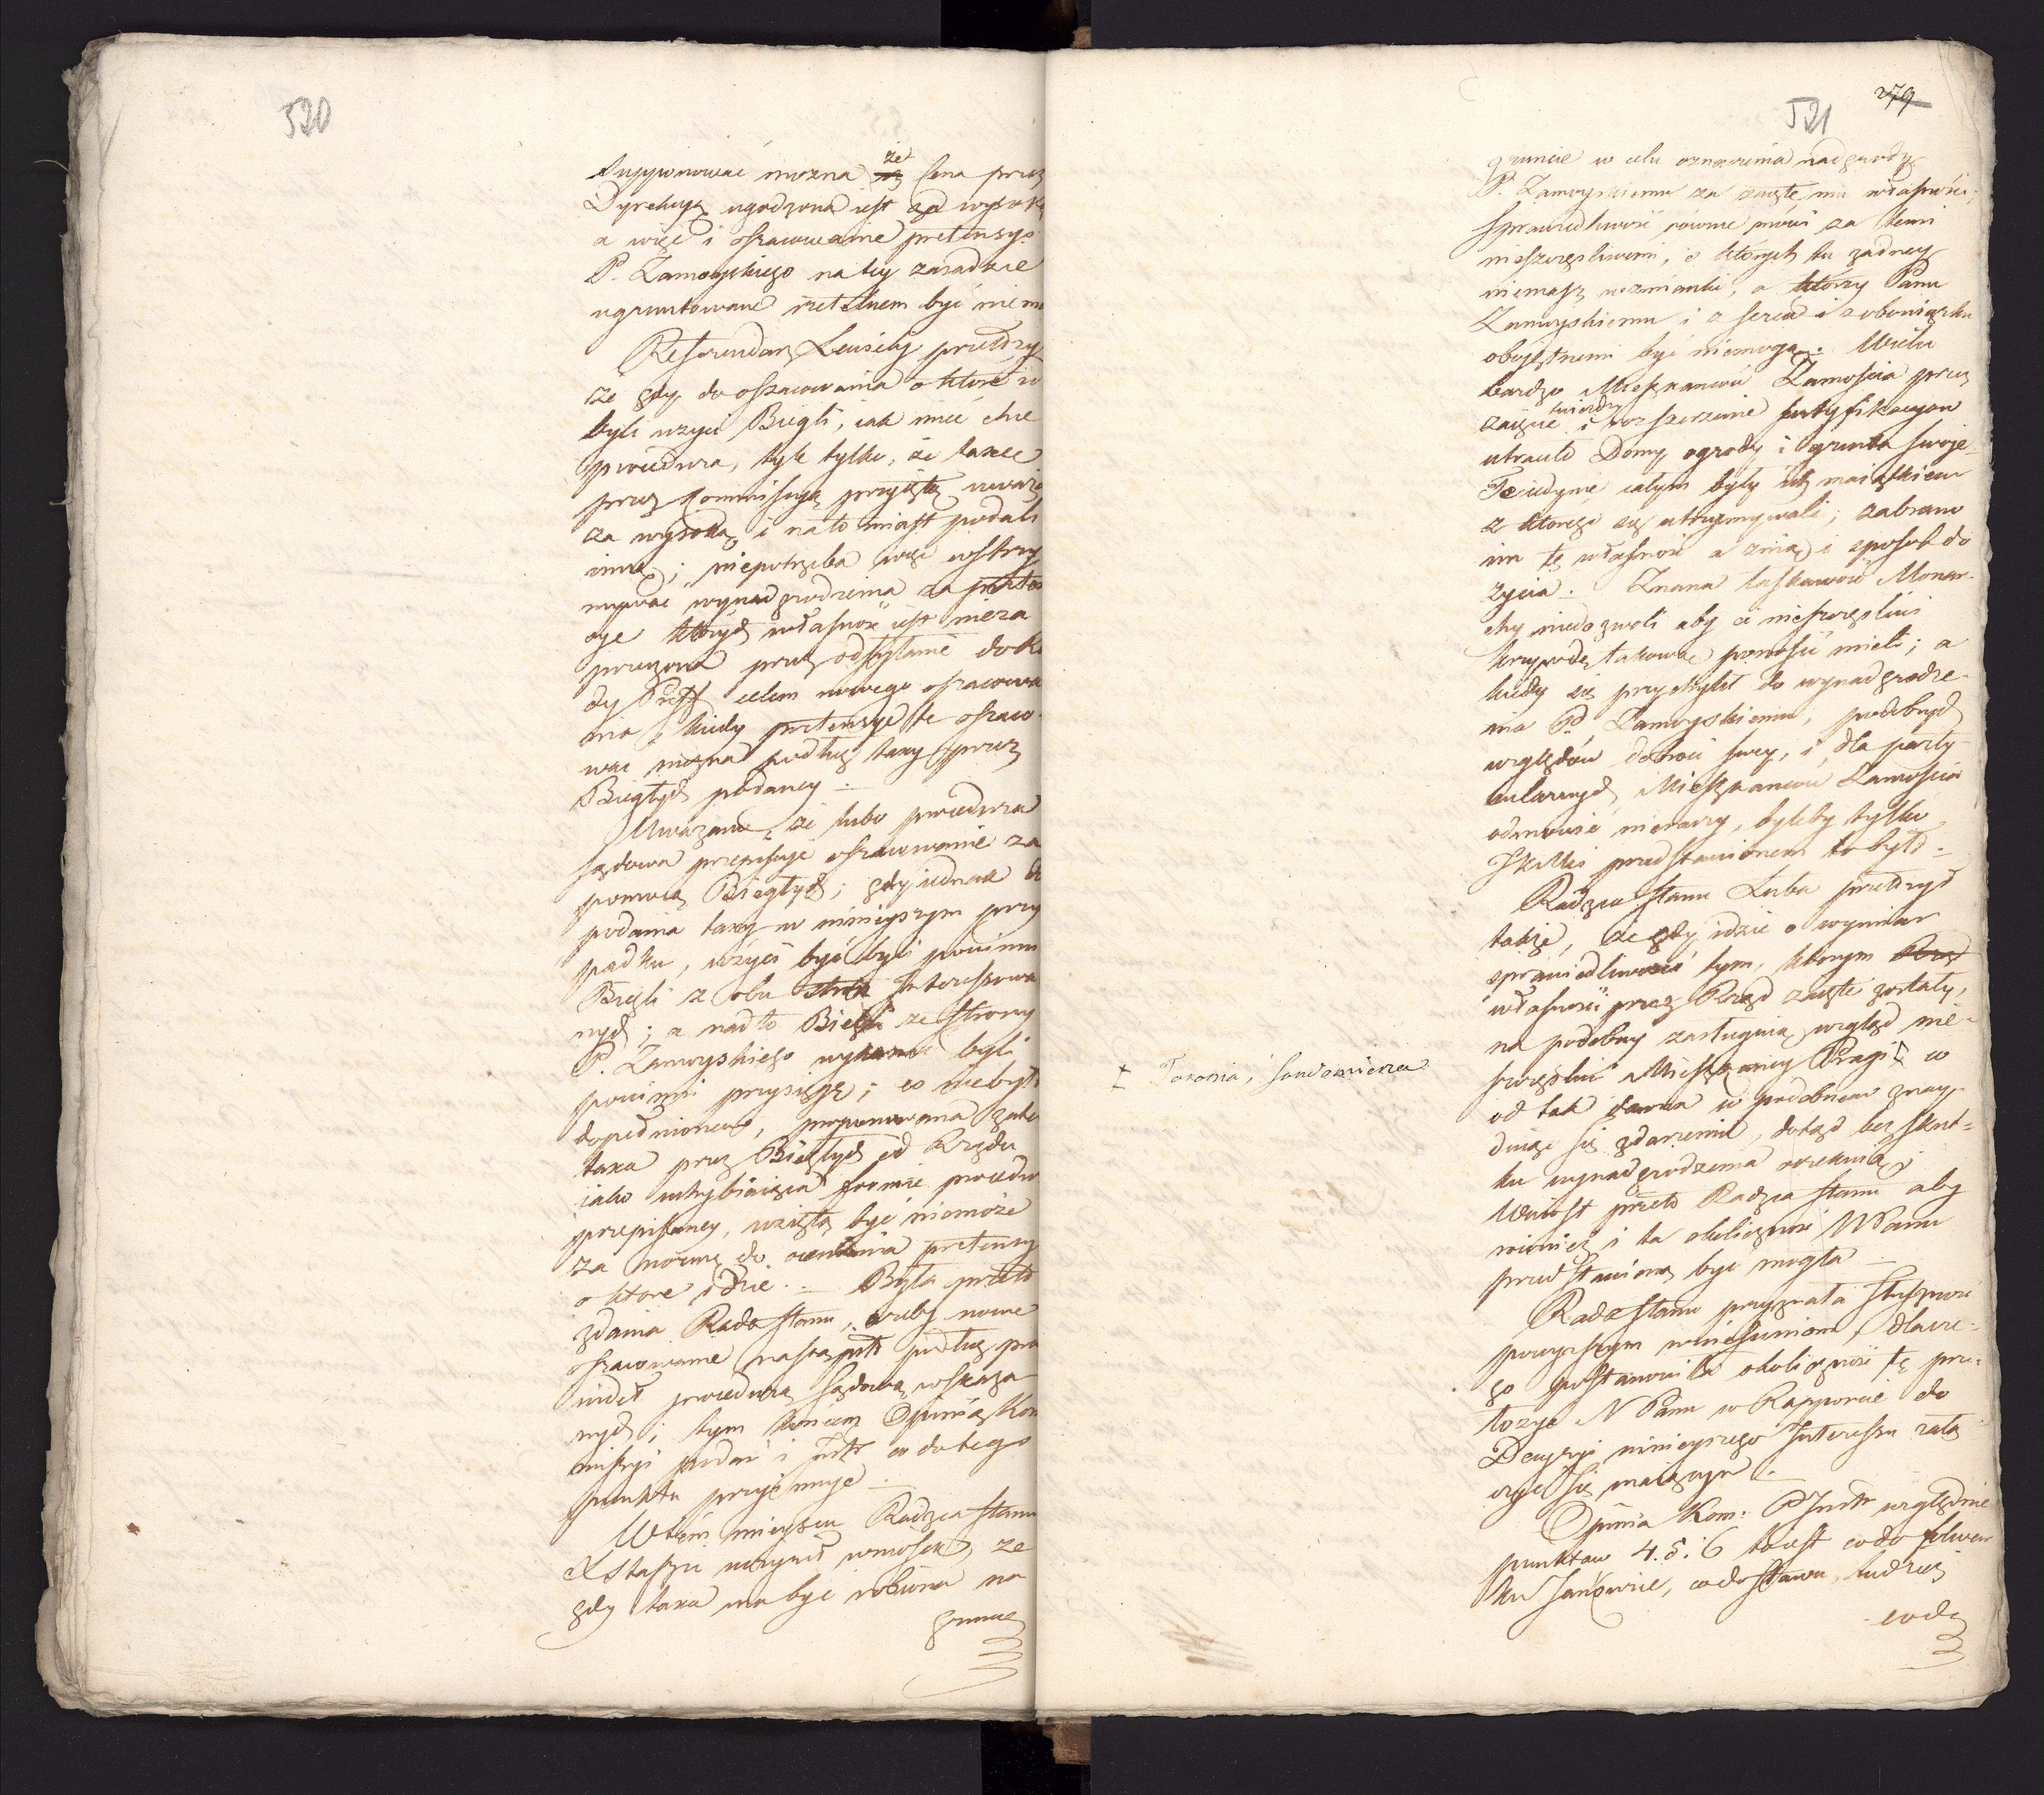 520
suppynować można że Cena przez
Dyrekcyą ugodzona iest za wysoką
a więc i oszacowanie pretensyi
P. Zamoyskiego na tey zasadzie
ugruntowane rzetelnem być niemo
Referendarz przełoży
że gdy do oszacowania o które i
byli użyci Biegli, iak mieć chce
procedura, tyle tylko, że taxę
przez Kommissyą przyiętą uważa
za wysoką i nato miast podali
inną; niepotrzeba więc wstrzy
mywać wynadgrodzenia za preten
sye których własność iest nieza
przeczona przez odsyłanie do Ra
dy Preff celem nowego oszacowa
nia kiedy pretensye te oszaco
wać można podług taxy przez
Biegłych podaney.
Uważano, że lubo procedura
sądowa przepisuje oszacowanie za
pomocą Biegłych; gdy iednak do
podania taxy w ninieyszym przy
padku, użyci być byli powinni
Biegli z obu stron Interessowa
nych; a nadto Biegli ze strony
P. Zamoyskiego wykonać byli
powinni przysięgę; co niebyło
dopełnionem, proponowana zatem
taxa przez Biegłych od Rządu
iako uchybiaiąca formie procedu
przepisaney, wziętą być niemoże
za normę do ocenienia pretensy
o które idzie. — Była przeto
zdania Rada Stanu, żeby nowe
oszacowanie nastąpiło podług pra
wideł procedurą sądową wskaza
nych; tym końcem Opinią Kom
missyi podań i Instr co do tego
punktu przyjmuje.
W tém mieyscu Radzca Stanu
Staszic uczynił wniosek, że
gdy taxa ma być robiona na
gruncie
279
521
gruncie w celu oznaczenia nadgrody
P. Zamoyskiemu za zaiętę mu własności;
Sprawiedliwość równie mówi za temi
nieszczęśliwemi, o których tu żadney
niemasz wzmianki, a którzy Panu
Zamoyskiemu i z serca i z obowiązku
oboiętnemi być niemogą. Wielu
bardzo Mieszkańców Zamościa przez
zaięcie twierdzy i rozszerzenie fortyfikacyow
utraciło Domy ogrody i grunta swoje
Te iedynie całym były ich maiątkiem
z którego się utrzymywali; zabrano
im tę własność a z nią i sposób do
życia. Znana łaskawość Monar-
chy niedozwoli aby ci nieszczęśliwi
krzywdę takową ponosić mieli; a
kiedy się przychylił do wynadgrodze-
nia P. Zamoyskiemu, podobnych
względów dobroci swey, i dla party-
cularnych Mieszkańców Zamościa
odmówić nieraczy, byleby tylko
JKMci przedstawionem to było.
Radzca Stanu Łuba przełożył
także, że gdy idzie o wymiar
sprawiedliwości tym, którym Rząd
własności przez Rząd zaięte zostały,
na podobny zasługuią wzgląd nie-
szczęśliwi Mieszkańcy Pragi ‡ w
‡ Torunia, Sandomierza
od tak dawna w podobnem znay-
duiąc się zdarzeniu, dotąd bez skut-
ku wynadgrodzenia oczekuią;
Wniósł przeto Radzca Stanu aby
również i ta okoliczność NPanu
przedstawioną być mogła.
Rada Stanu przyznała słuszność
powyższym wniosieniom, dla cze-
go postanowiła okoliczność tę prze-
łożyć NPanu w Rapporcie do
Decyzyi ninieyszego Interessu załą-
czyć się maiącym.
Opinia Kom: P Instr względnie
punktow 4. 5. i 6 to iest co do folwar
ku Janowice, co do stawu, tudzież
co do